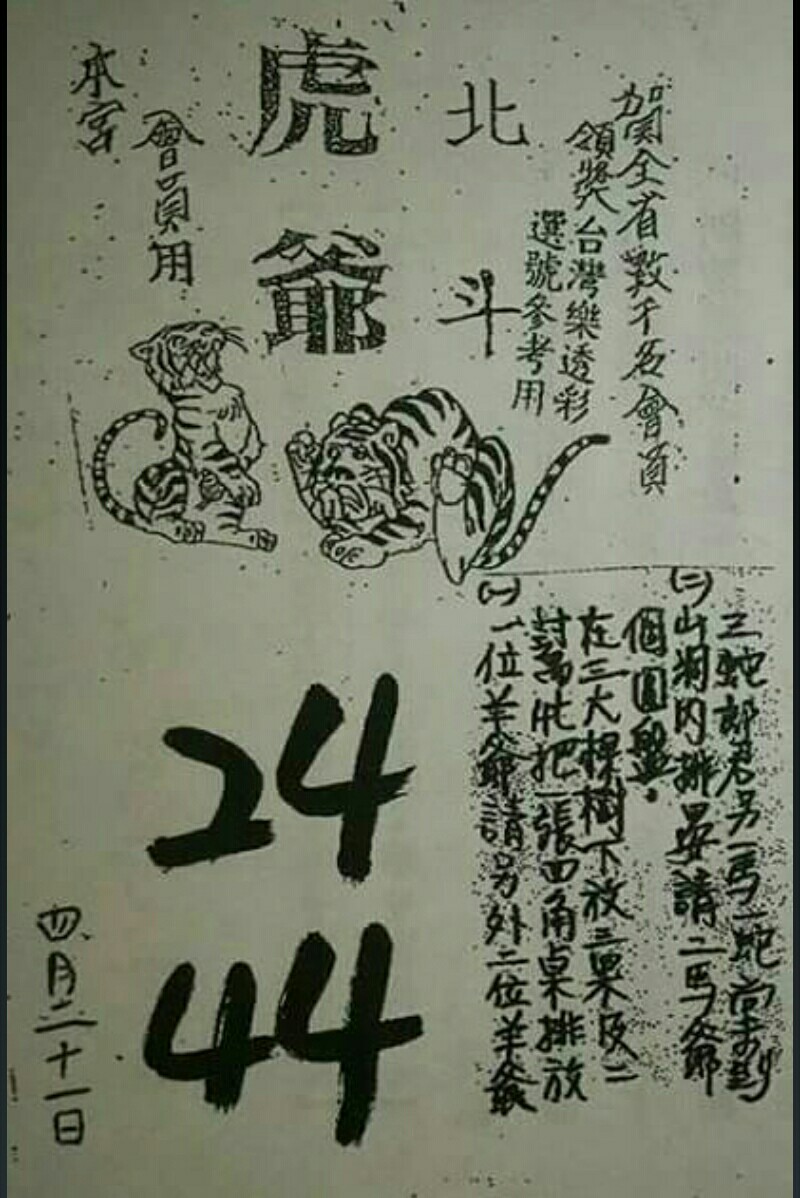 賀全省數千名會員
領獎台灣樂透彩
選號參考用
北斗
虎爺
會員用
本宮
(一)一位羊爺請另外二位羊爺
討論此把一張四角桌排放
在三大棵樹下放三果及二
個圓盤。
(二)山將內排宴請二馬爺
三蛇郎君另一馬一蛇
24
44
四月二十一日